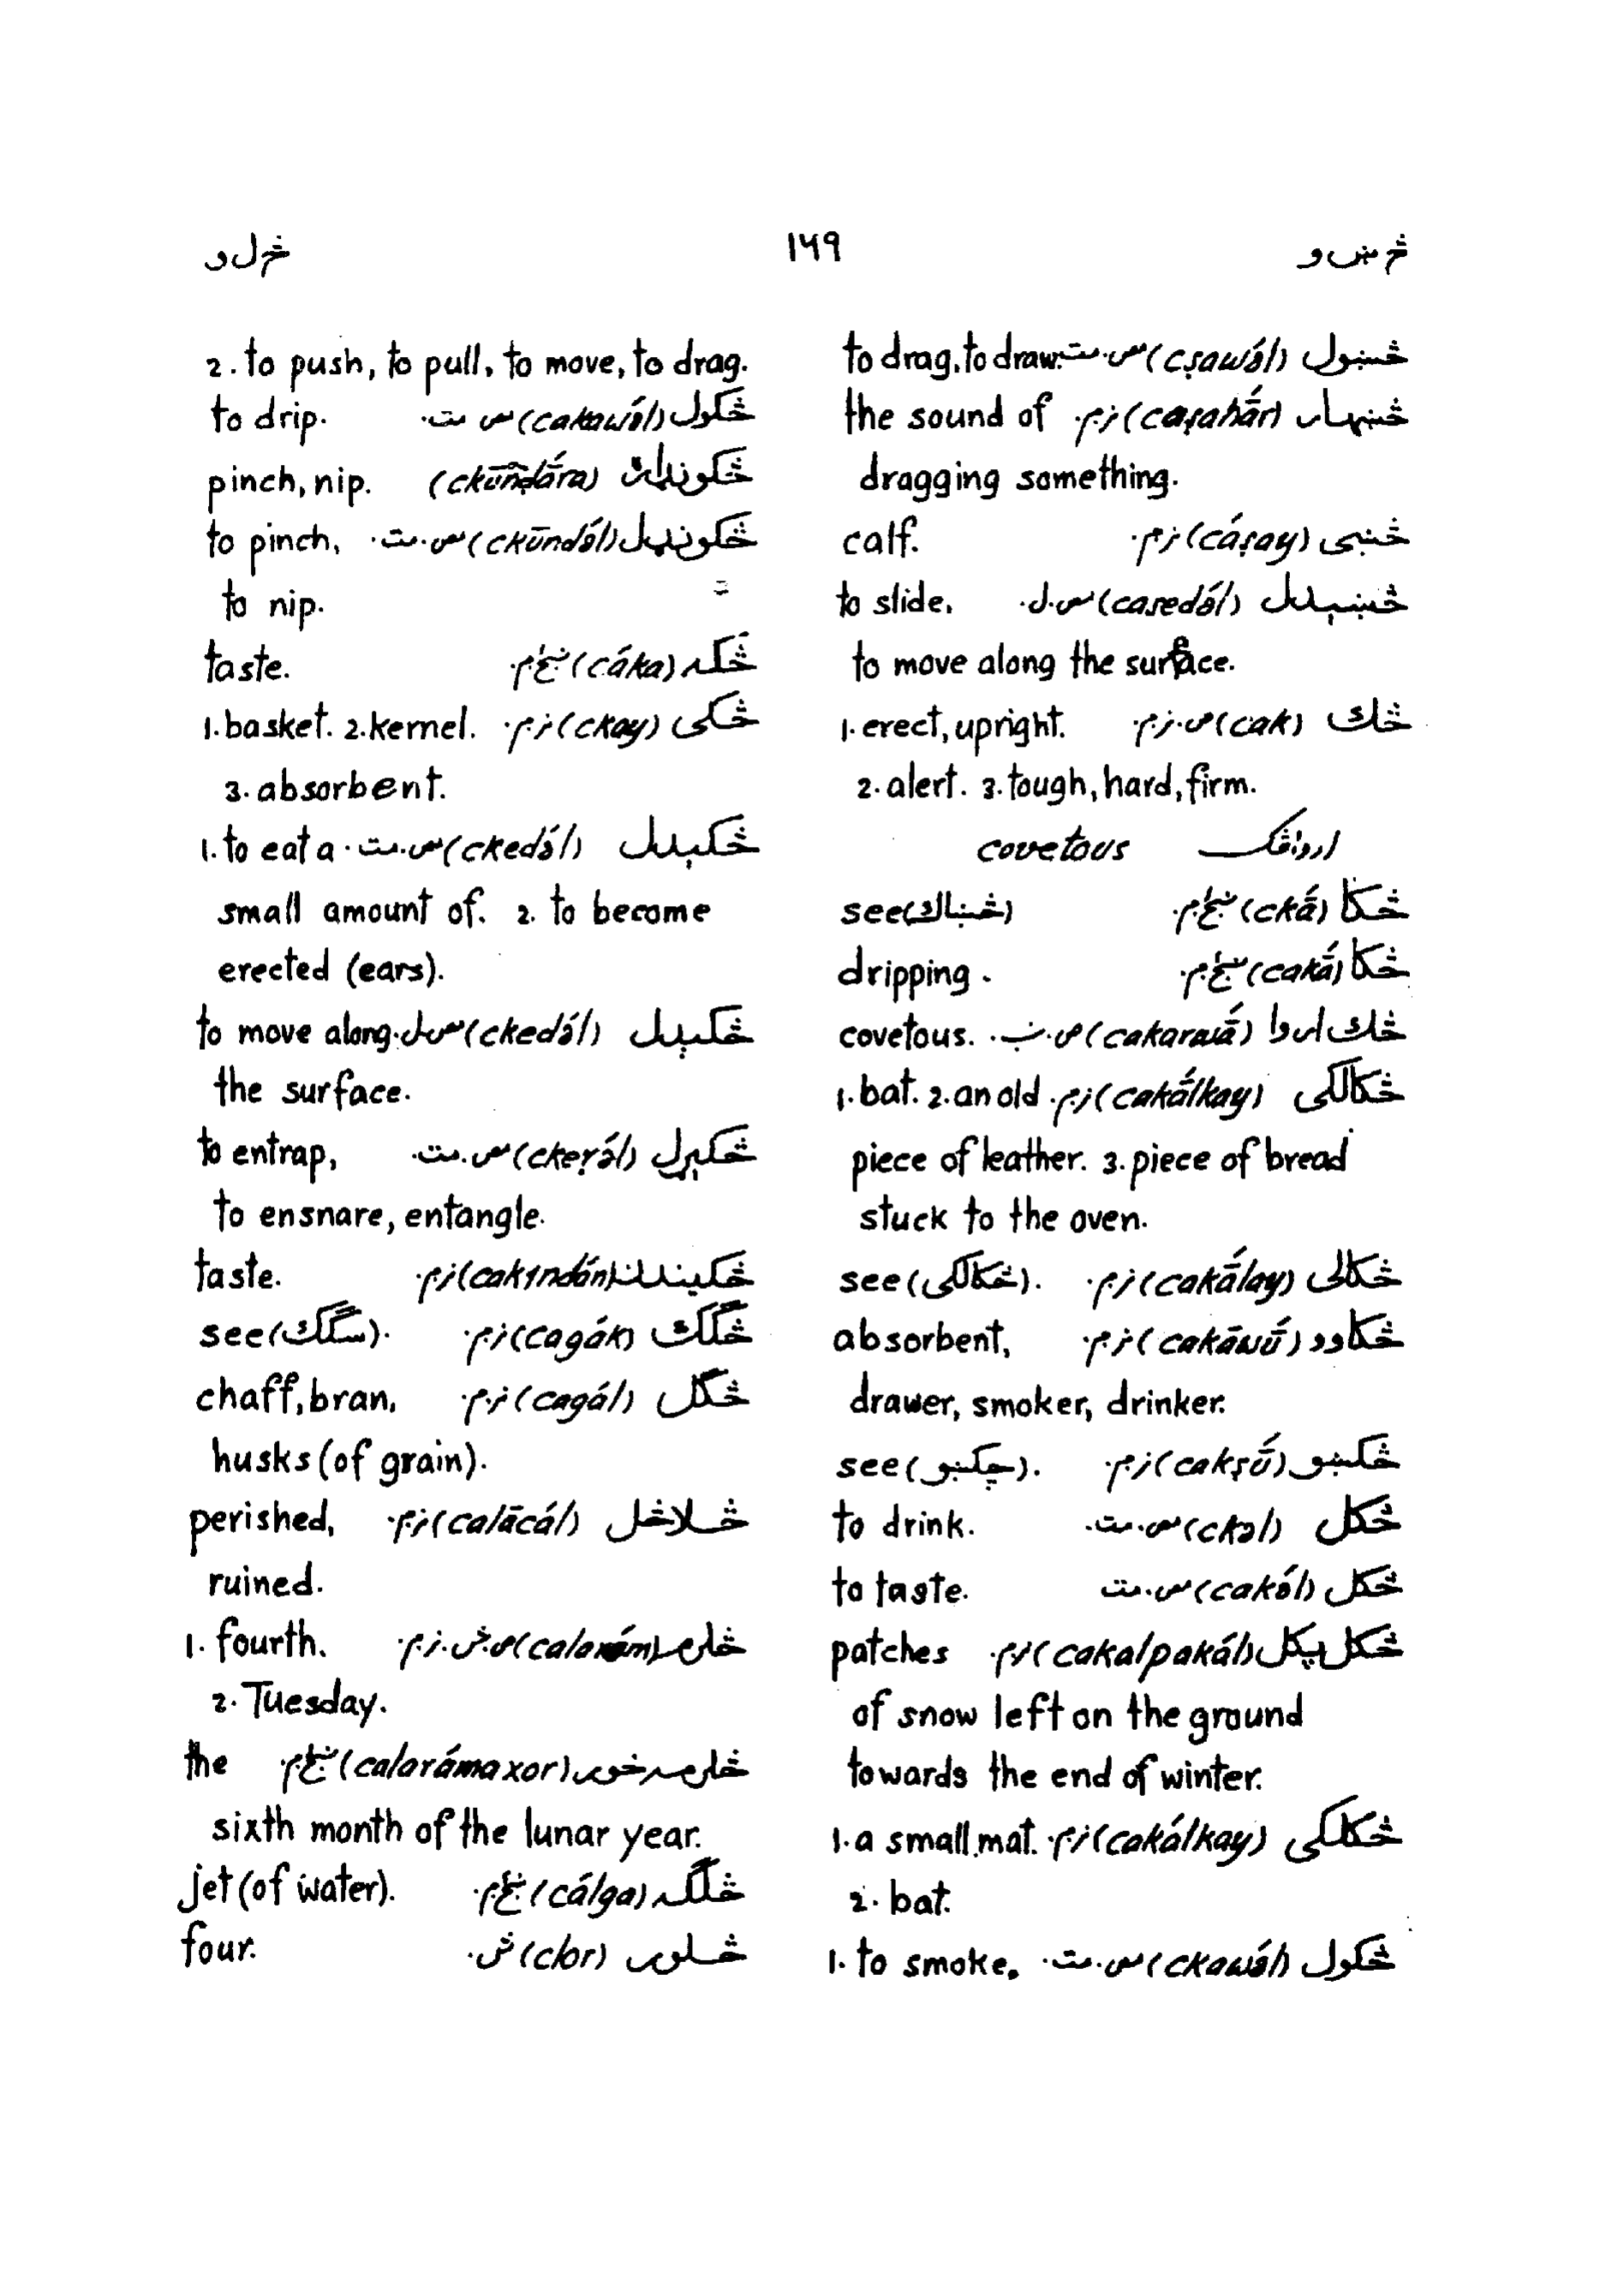 څ ښ و
۱۶۹
څ ل و
څښول (cṣawə́l) س.مت. to drag, to draw.
څښهار (caṣahā́r) نر.م. the sound of
dragging something.
څښی (cáṣay) نر.م. calf.
څښېدل (caṣedə́l) س.ل. to slide,
to move along the surface.
څك (cak) ص.نر.م. 1. erect, upright.
2. alert. 3. tough, hard, firm.
covetous
څکا (ckā́) ښځ.م. see (څښاك)
څکا (cakā́) ښځ.م. dripping.
څك اروا (cakarwā́) covetous.
څکالکی (cakā́lkay) نر.م. 1. bat. 2. an old
piece of leather. 3. piece of bread
stuck to the oven.
څکالی (cakā́lay) نر.م. see (څکالکی).
څکاوو (cakāwū́) نر.م. absorbent,
drawer, smoker, drinker.
څکښو (cakṣū́) نر.م. see (چکښو).
څکل (ckəl) س.مت. to drink.
څکل (cakə́l) س.مت to taste.
څکل پکل (cakalpakál) نر.م. patches
of snow left on the ground
towards the end of winter.
څکلکی (cakálkay) نر.م. 1. a small mat.
2. bat.
څکول (ckawə́l) س.مت. 1. to smoke.
2. to push, to pull, to move, to drag.
څکول (cakawə́l) س مت. to drip.
(ckūṇḍā́ra) pinch, nip.
څکونډل (ckūndə́l) س.مت. to pinch,
to nip.
څکه (cáka) ښځ.م. taste.
څکی (ckay) نر.م. 1. basket. 2. kernel.
3. absorbent.
څکېدل (ckedə́l) س.مت. 1. to eat a
small amount of. 2. to become
erected (ears).
څکېدل (ckedə́l) س.ل. to move along
the surface.
څکېړل (ckeṛə́l) س.مت. to entrap,
to ensnare, entangle.
څکیندن (cakındə́n) نر.م. taste.
څګك (cagák) نر.م. see (سګك).
څګل (cagál) نر.م. chaff, bran,
husks (of grain).
څلاڅل (calācál) نر.م. perished,
ruined.
څلرم (calarám) ص.ش.نر.م. 1. fourth.
2. Tuesday.
څلرمه خور (calarámaxor) ښځ.م. the
sixth month of the lunar year.
څلګه (cálga) ښځ.م. jet (of water).
څلور (clor) ش. four.